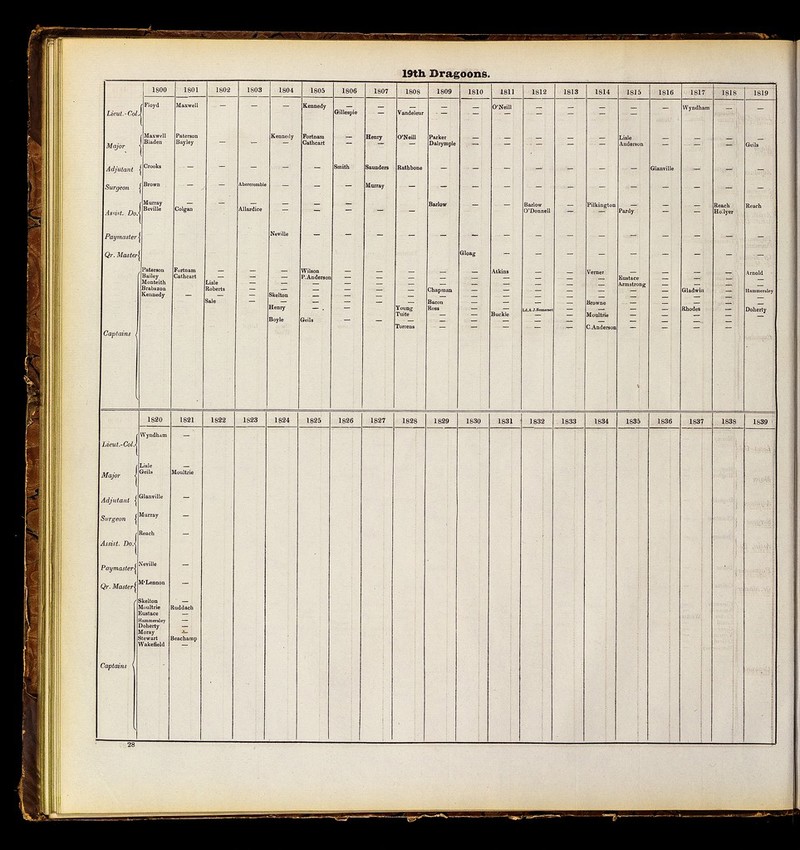 19th Dragoons.
1800 1801 1802 1803 1804 1805 1806 1807 1808 1809 1810 1811 1812 1813 1814 1815 1816 1817 1818 1819
Lieut.-Col. Floyd Maxwell — — — Kennedy — — — — — O'Neill — — — — — Wyndham — —
Gillespie — Vandeleur — — — — — — — —
Major Maxwell Paterson Kennedy Fortnam — Henry O'Neill Parker — — — — — Lisle — — — —
Bladen Bayley — — — Cathcart — — — Dalrymple — — — — — Anderson — — — Geils
Adjutant Crooks — — — — — Smith Saunders Rathbone — — — — — — — Glanville — — —
Surgeon Brown — — Abercrombie — — — Murray — — — — — — — — — — — —
Assist. Do. Murray — — — — — — Barlow — — Barlow — Pilkington — — — Reach Reach
Beville Colgan Allardice — — — — — O'Donnell — — Pardy — — Hollyer
Paymaster Neville — — — — — — — — — — — — — — —
Qr. Master Gloag — — — — — — — — —
Captains Paterson Fortnam — — — Wilson — — — — — Atkins — — Verner — — — — Arnold
Bailey Cathcart — — — P. Anderson — — — — — — — — — Eustace — — — —
Monteith Lisle — — — — — — — — — — — — Armstrong — — —
Brabazon Roberts — — — — — — Chapman — — — — — — — Gladwin — Hammersley
Kennedy — — — Skelton — — — — — — — — — — — — — — —
Sale — — — — — — Bacon — — — — Browne — — — — —
Henry — — — Young Ross — — Ld. A. J. Somerset — — — — Rhodes — Doherty
Tuite — — Buckle — — Moultrie — — — — —
Boyle Geils — — — — — — — — — — — — —
Torrens — — — — — C. Anderson — — — —
1820 1821 1822 1823 1824 1825 1826 1827 1828 1829 1830 1831 1832 1833 1834 1835 1836 1837 1838 1839
Lieut.-Col. Wyndham —
Major Lisle —
Geils Moultrie
Adjutant Glanville —
Surgeon Murray —
Assist. Do. Reach —
Paymaster Neville —
Qr. Master McLennon —
Captains Skelton —
Moultrie Ruddach
Eustace —
Hammersley —
Doherty —
Moray —
Stewart Beachamp
Wakefield —
28